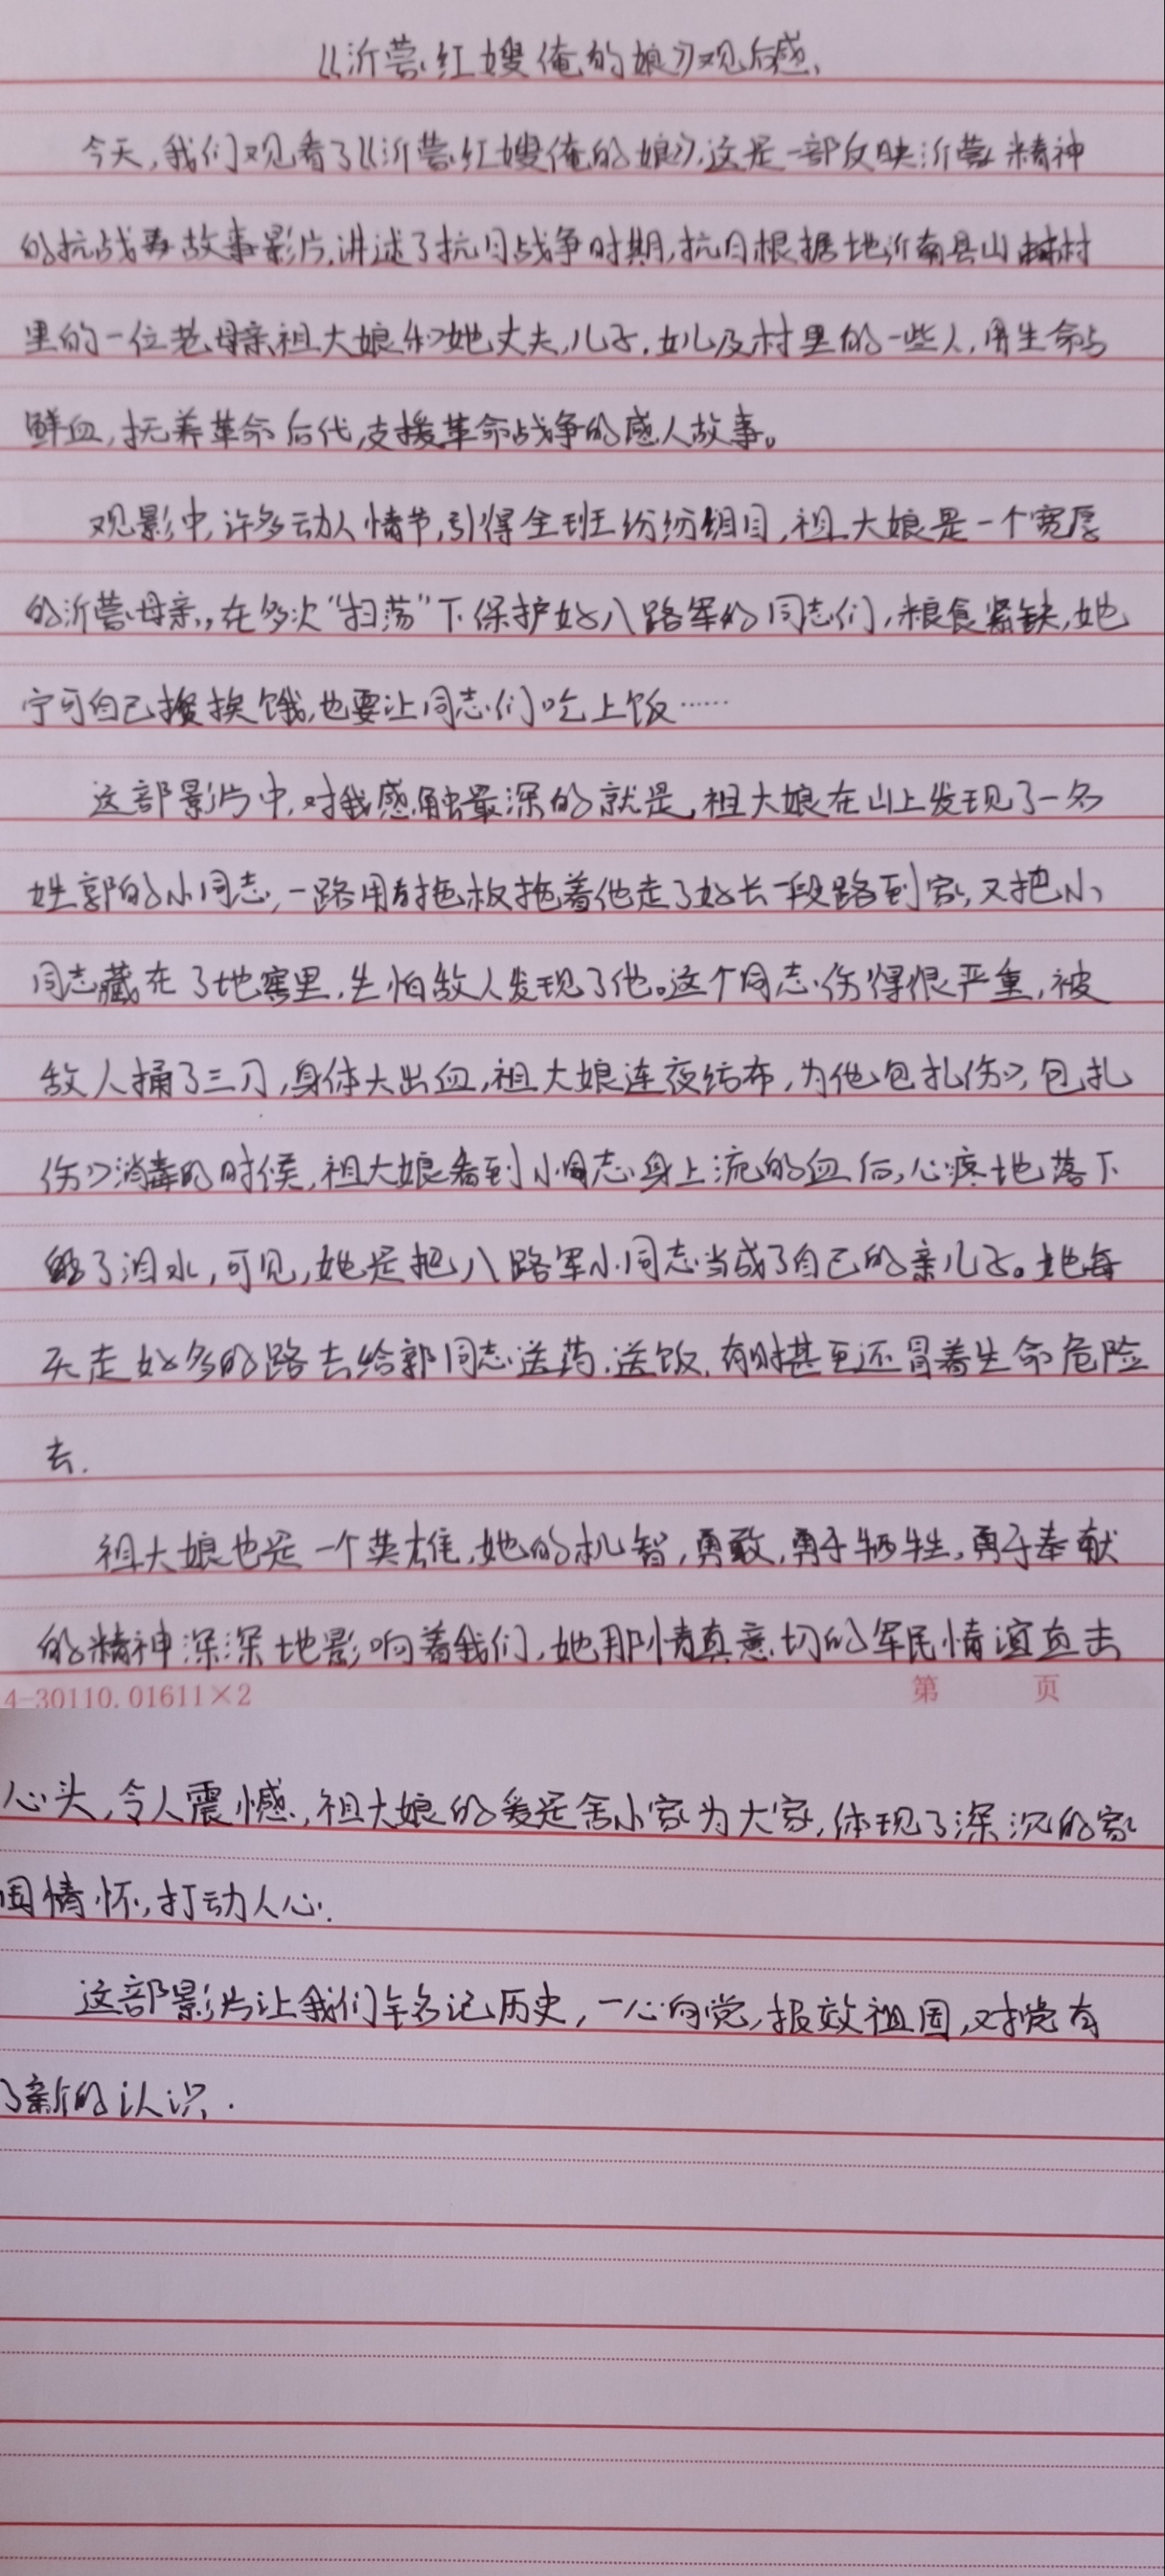 《沂蒙红嫂俺的娘》观后感
今天,我们观看了《沂蒙红嫂俺的娘》,这是一部反映沂蒙精神
的抗战故事影片,讲述了抗日战争时期,抗日根据地沂南县山村
里的一位老母亲祖大娘和她丈夫,儿子,女儿及村里的一些人,用生命与
鲜血,抚养革命后代,支援革命战争的感人故事。
观影中,许多动人情节,引得全班纷纷瞩目,祖大娘是一个宽厚
的沂蒙母亲,,在多次“扫荡”下保护好八路军的同志们,粮食紧缺,她
宁可自己挨饿,也要让同志们吃上饭……
这部影片中,对我感触最深的就是,祖大娘在山上发现了一名
姓郭的小同志,一路用拖板拖着他走了好长一段路到家,又把小
同志藏在了地窖里,生怕敌人发现了他。这个同志伤得很严重,被
敌人捅了三刀,身体大出血,祖大娘连夜结布,为他包扎伤口,包扎
伤口消毒的时候,祖大娘看到小同志身上流的血后,心疼地落下
了泪水,可见,她是把八路军小同志当成了自己的亲儿子。她每
天走好多的路去给郭同志送药,送饭,有时甚至还冒着生命危险
去.
祖大娘也是一个英雄,她的机智,勇敢,勇于牺牲,勇于奉献
的精神深深地影响着我们,她那情真意切的军民情谊直击
4-30110.01611×2 第 页
心头,令人震憾,祖大娘的爱是舍小家为大家,体现了深沉的家
国情怀,打动人心.
这部影片让我们牢记历史,一心向党,报效祖国,对党有
了新的认识.